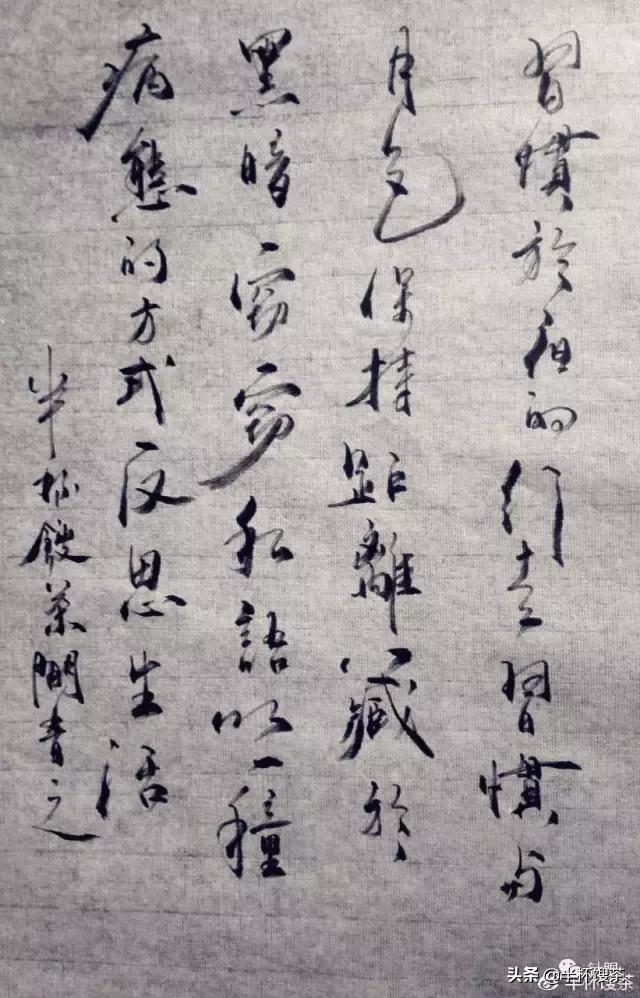 習慣於夜的行走習慣与
月色保持距離藏於
黑暗窃窃私語以一種
病態的方式反思生活
半杯餿茶閒書之
头条 @半杯馊茶